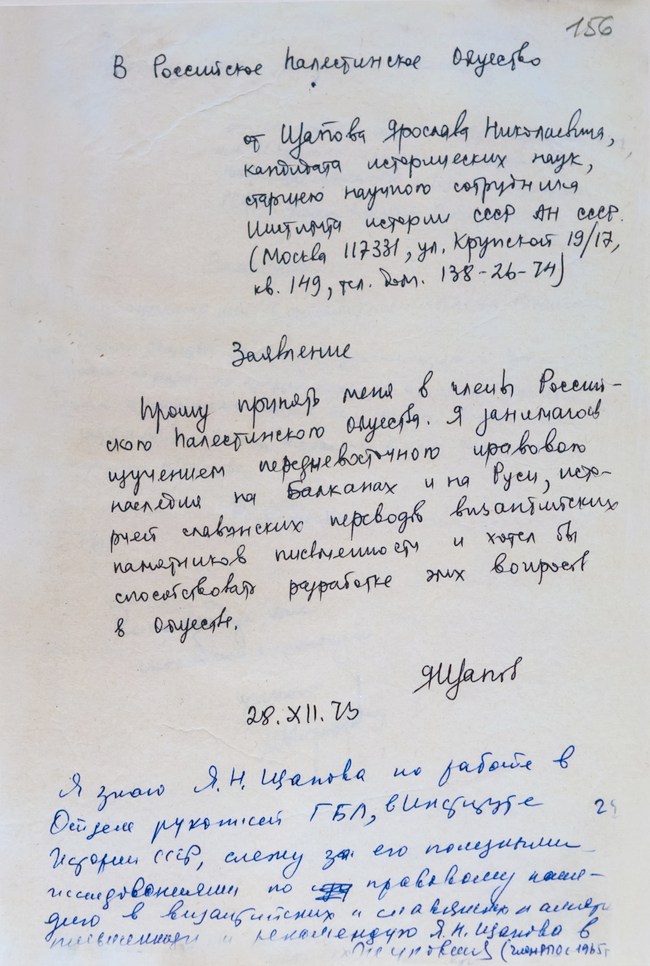 156
В Российское Палестинское Общество
от Щапова Ярослава Николаевича,
кандидата исторических наук,
старшего научного сотрудника
Института истории СССР АН СССР.
(Москва 117331, ул. Крупской 19/17,
кв. 149, тел. дом. 138-26-74)
Заявление
Прошу принять меня в члены Россий-
ского Палестинского Общества. Я занимаюсь
изучением передневосточного правового
наследия на Балканах и на Руси, исто-
рией славянских переводов византийских
памятников письменности и хотел бы
способствовать разработке этих вопросов
в Обществе.
ЯЩапов
28.XII.73
Я знаю Я.Н. Щапова по работе в
Отделе рукописей ГБЛ, в Институте
Истории СССР, слежу за его полезными
исследованиями по правовому насле-
дию в византийских и славянских
письменности и рекомендую Я.Н. Щапова в
(член РПО с 1965г